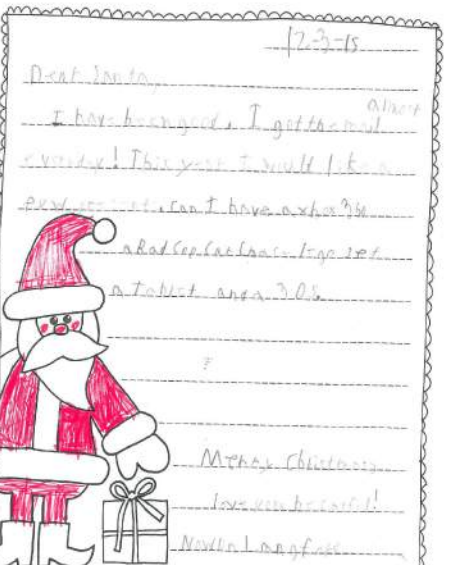 12-3-15
Dear Santa,
almost
I have been good. I got the mail
everyday! This year I would like a
can I have a xbox 360
a Rad Cop Car Chase lego set
a Tablet and a 3DS
Merry Christmas
love you be careful!